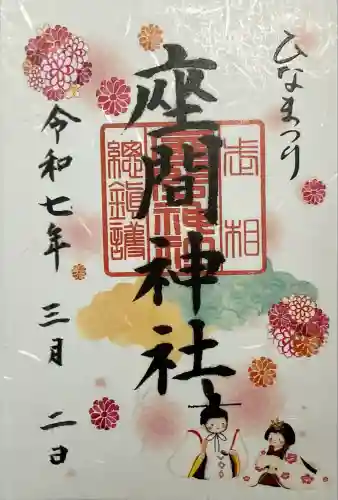 ひなまつり
座間神社
令和七年 三月 二日
相武
座間神社
總鎮護